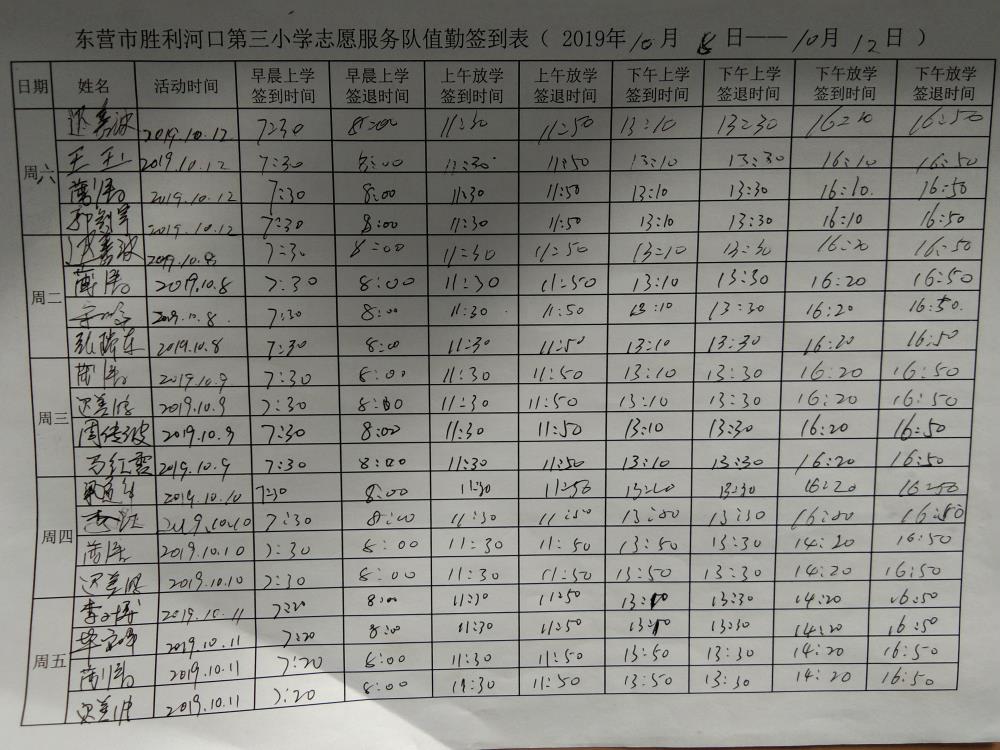 东营市胜利河口第三小学志愿服务队值勤签到表（ 2019年10月 8 日——10月 12 日 ）
日期 姓名 活动时间 早晨上学签到时间 早晨上学签退时间 上午放学签到时间 上午放学签退时间 下午上学签到时间 下午上学签退时间 下午放学签到时间 下午放学签退时间
周六 2019.10.12 7:30 8:00 11:30 11:50 13:10 13:30 16:50
王玉 2019.10.12 7:30 8:00 11:30 11:50 13:10 13:30 16:10 16:50
2019.10.12 7:30 8:00 11:30 11:50 13:10 13:30 16:10 16:50
2019.10.12 7:30 8:00 11:30 11:50 13:10 13:30 16:10 16:50
周二 2019.10.8 7:30 8:00 11:30 11:50 13:10 13:30 16:20 16:50
2019.10.8 7:30 8:00 11:30 11:50 13:10 13:30 16:20 16:50
2019.10.8 7:30 8:00 11:30 11:50 13:10 13:30 16:20 16:50
2019.10.8 7:30 8:00 11:30 11:50 13:10 13:30 16:20 16:50
周三 2019.10.9 7:30 8:00 11:30 11:50 13:10 13:30 16:20 16:50
2019.10.9 7:30 8:00 11:30 11:50 13:10 13:30 16:20 16:50
周传波 2019.10.9 7:30 8:00 11:30 11:50 13:10 13:30 16:20 16:50
马红霞 2019.10.9 7:30 8:00 11:30 11:50 13:10 13:30 16:20 16:50
周四 2019.10.10 7:30 8:00 11:30 11:50 13:30 16:20 16:50
2019.10.10 7:30 8:00 11:30 11:50 13:30 16:50
2019.10.10 7:30 8:00 11:30 11:50 13:50 13:30 14:20 16:50
2019.10.10 7:30 8:00 11:30 11:50 13:50 13:30 14:20 16:50
周五 2019.10.11 7:20 8:00 11:30 11:50 13:30 14:20 16:50
2019.10.11 7:20 8:00 11:30 11:50 13:30 14:20 16:50
2019.10.11 7:20 8:00 11:30 11:50 13:50 13:30 14:20 16:50
2019.10.11 7:20 8:00 11:30 11:50 13:50 13:30 14:20 16:50